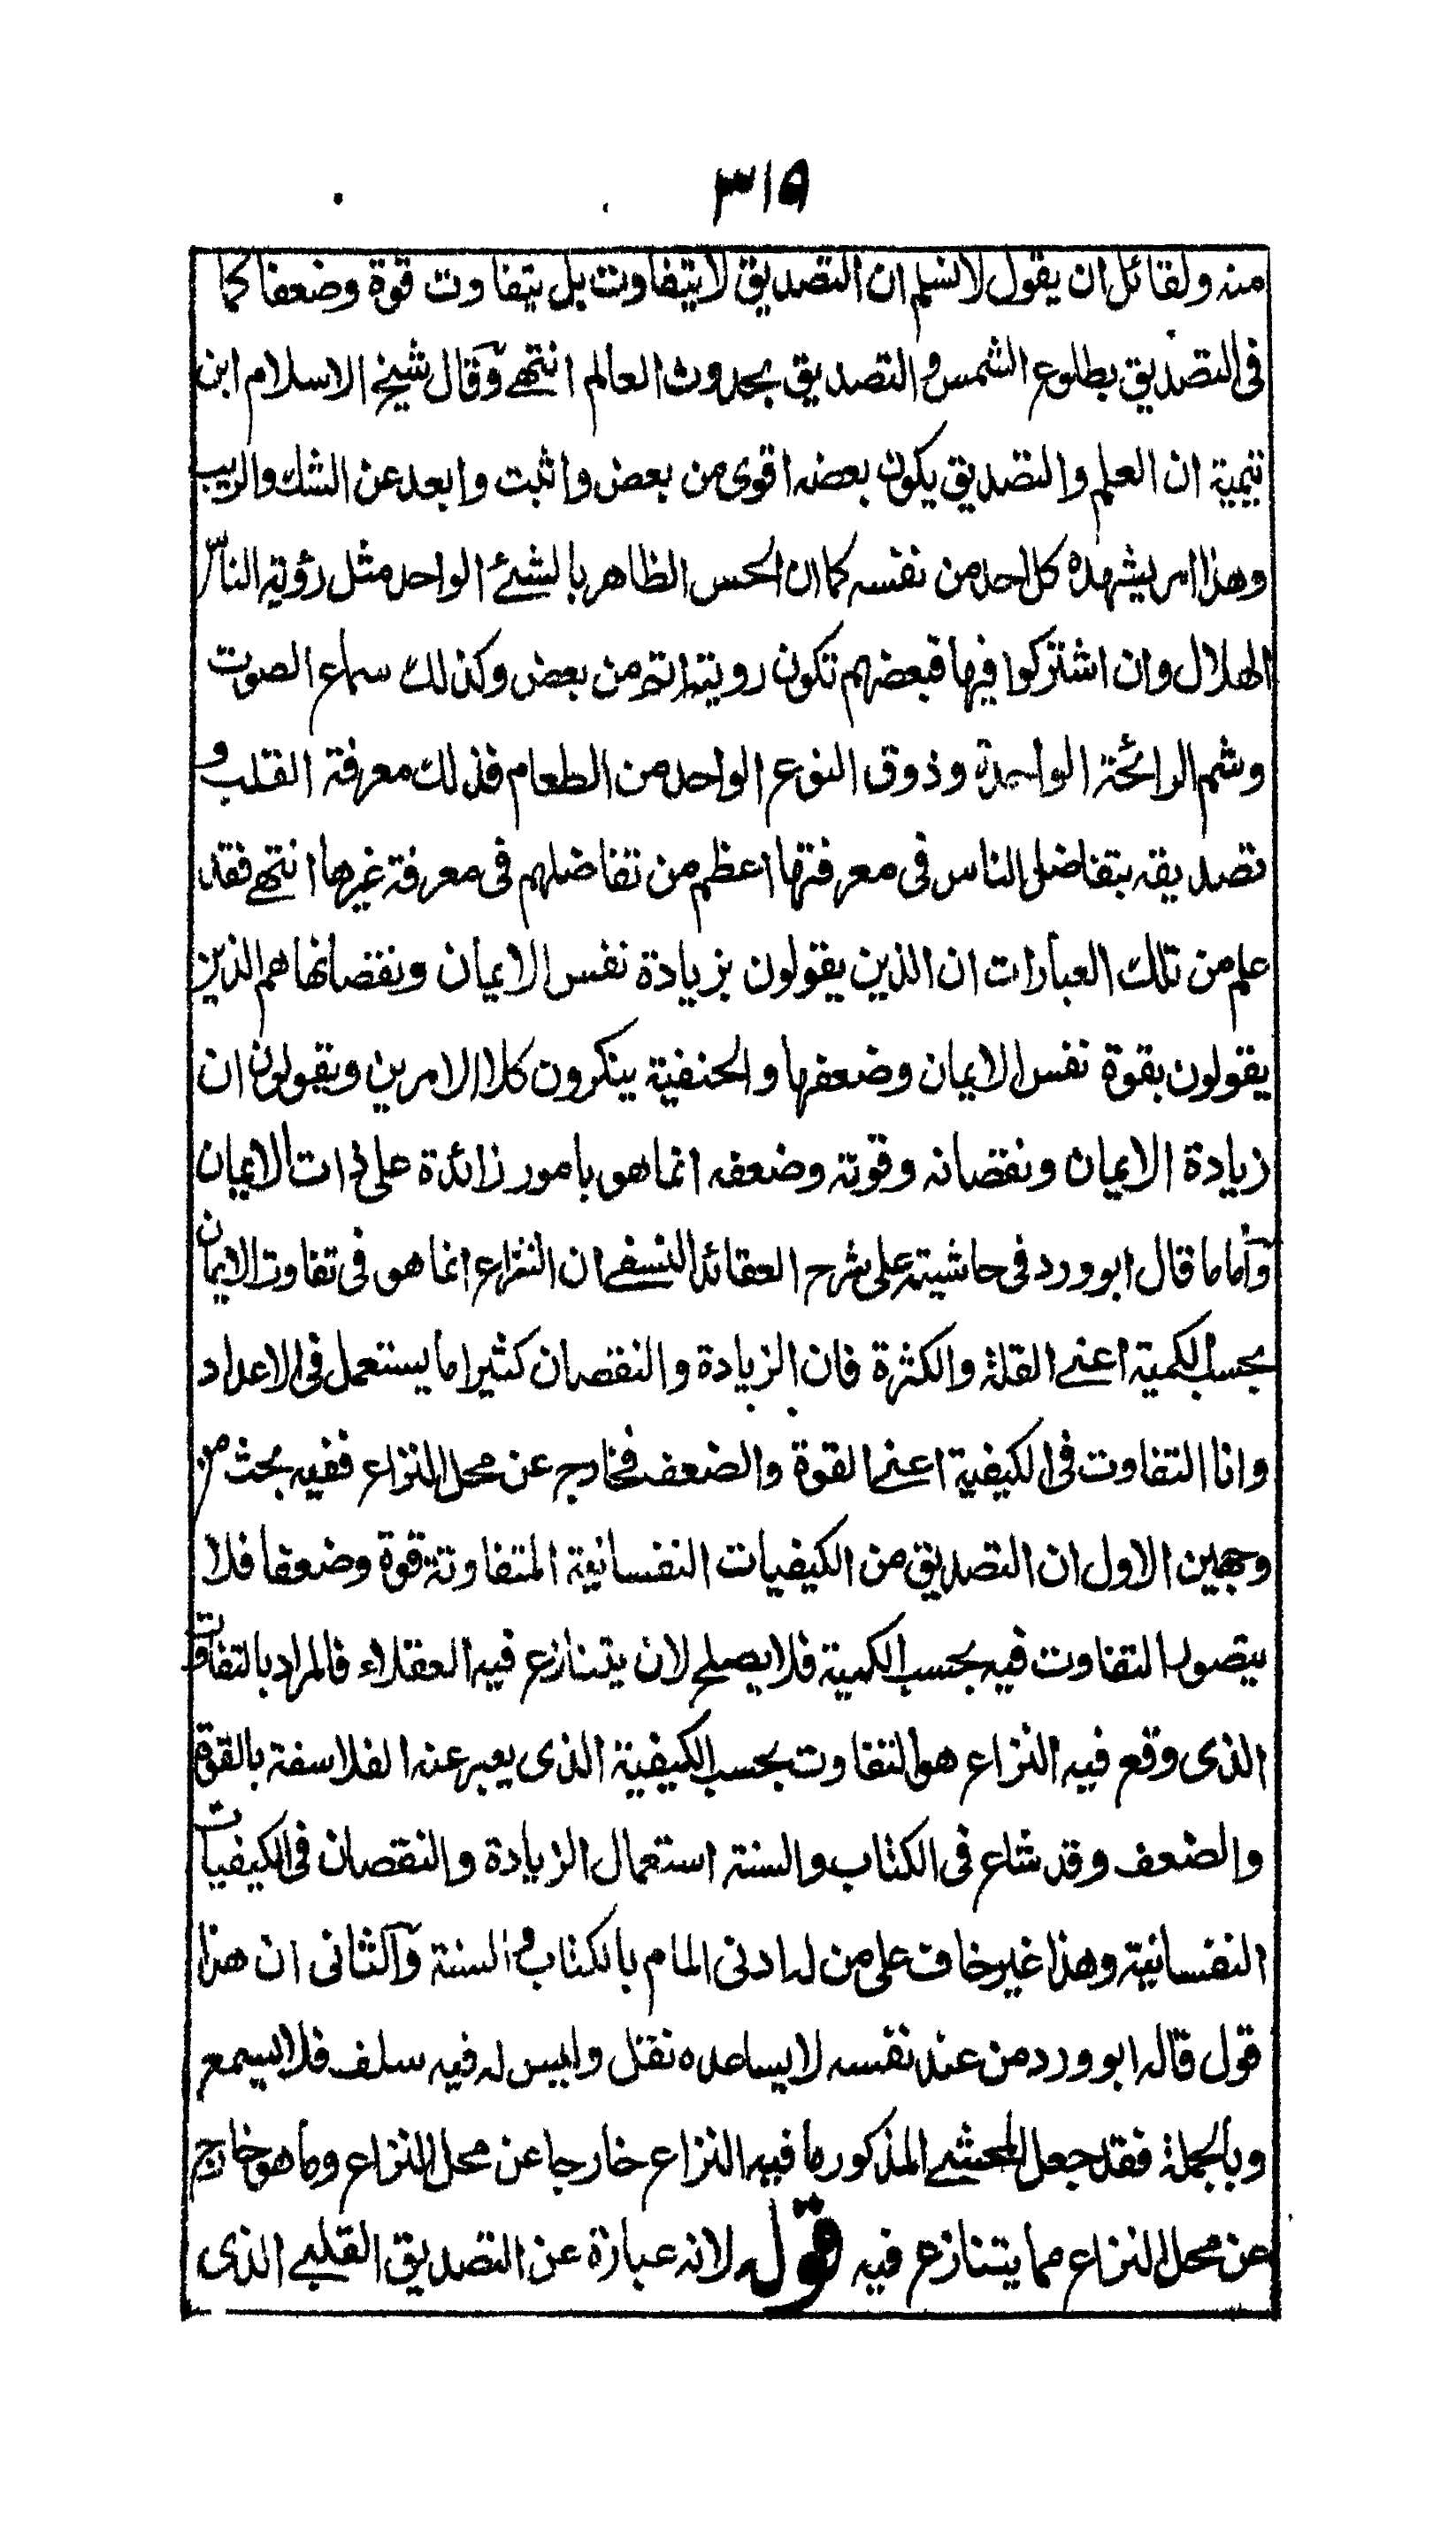 ٣١٩
منه ولقائل ان يقول لا نسلم ان التصديق لا يتفاوت بل يتفاوت قوة وضعفا كما
فى التصديق بطلوع الشمس والتصديق بحدوث العالم انتهے وقال شيخ الاسلام ابن
تيمية ان العلم والتصديق يكون بعضه اقوى من بعض واثبت وابعد عن الشك والريب
وهذا امر يشهده كل احد من نفسه كما ان الحس الظاهر بالشئ الواحد مثل رؤية الناس
الهلال وان اشتركوا فيها فبعضهم تكون رويته اتم من بعض وكذلك سماع الصوت
وشم الرائحة الواحدة وذوق النوع الواحد من الطعام فذلك معرفة القلب و
تصديقه يتفاضل الناس فى معرفتها اعظم من تفاضلهم فى معرفة غيرها انتهے فقد
علم من تلك العبارات ان الذين يقولون بزيادة نفس الايمان ونقصانها هم الذين
يقولون بقوة نفس الايمان وضعفها والحنفية ينكرون كلا الامرين ويقولون ان
زيادة الايمان ونقصانه وقوته وضعفه انما هو بامور زائدة على ذات الايمان
واما ما قال ابو ورد فى حاشيته على شرح العقائد النسفے ان النزاع انما هو فى تفاوت الايمان
بحسب الكمية اعنے القلة والكثرة فان الزيادة والنقصان كثيرا ما يستعمل فى الاعداد
وانا التفاوت فى الكيفية اعنے القوة والضعف فخارج عن محل النزاع ففيه بحث من
وجهين الاول ان التصديق من الكيفيات النفسانية المتفاوتة قوة وضعفا فلا
يتصور التفاوت فيه بحسب الكمية فلا يصلح لان يتنازع فيه العقلاء فالمراد بالتفاوت
الذى وقع فيه النزاع هو التفاوت بحسب الكيفية الذى يعبر عنه الفلاسفة بالقوة
والضعف وقد شاع فى الكتاب والسنة استعمال الزيادة والنقصان فى الكيفيات
النفسانية وهذا غير خاف على من له ادنى المام بالكتاب والسنة والثانى ان هذا
قول قاله ابو ورد من عند نفسه لا يساعده نقل وليس له فيه سلف فلا يسمع
وبالجملة فقد جعل المحشے المذكور ما فيه النزاع خارجا عن محل النزاع وما هو خارج
عن محل النزاع مما يتنازع فيه قوله لانه عبارة عن التصديق القلبے الذى